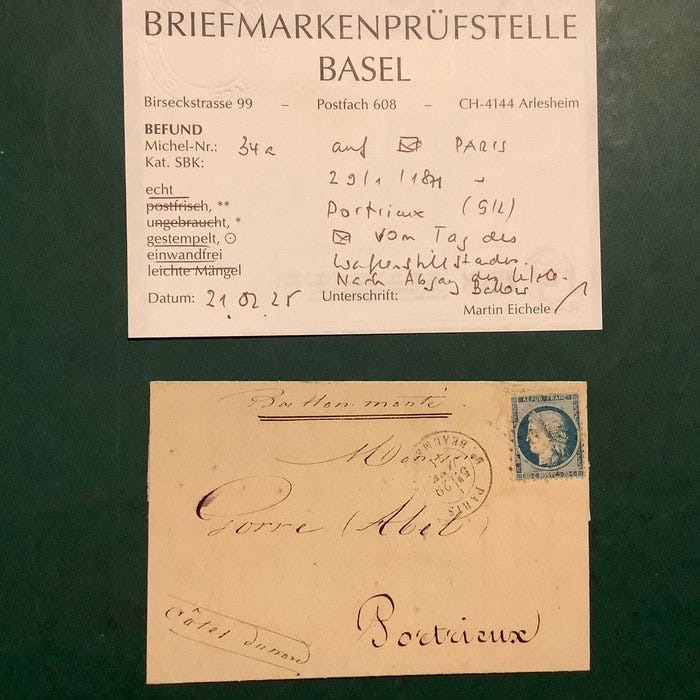 BRIEFMARKENPRÜFSTELLE
BASEL
Birseckstrasse 99 – Postfach 608 – CH-4144 Arlesheim
BEFUND
Michel-Nr.: 34a auf PARIS
Kat. SBK: 29/1/1871 -
echt
postfrisch, ** Portrieux (Gil)
ungebraucht, *
gestempelt, ⊙ vom Tag des
einwandfrei Waffenstillstandes.
leichte Mängel Nach Abgang des letzten Ballons
Datum: 21.02.25 Unterschrift:
Martin Eichele
Ballon monté.
REPUB. FRANC.
Monsieur
PARIS
29
JANV.
Bd BEAUM
Gorre (Abel)
Portrieux
Côtes du nord